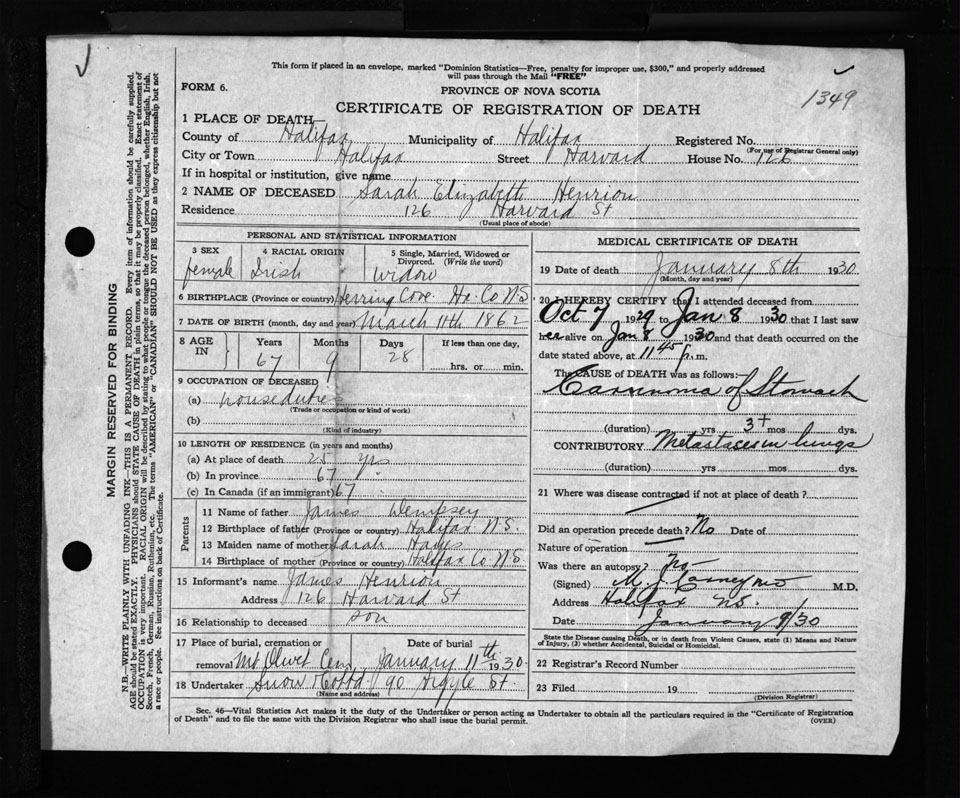 This form if placed in an envelope, marked "Dominion Statistics—Free, penalty for improper use, $300," and properly addressed
will pass through the Mail "FREE"
FORM 6.
PROVINCE OF NOVA SCOTIA
1349
CERTIFICATE OF REGISTRATION OF DEATH
1 PLACE OF DEATH—
County of Halifax Municipality of Halifax Registered No.
(For use of Registrar General only)
City or Town Halifax Street Harvard House No. 126
If in hospital or institution, give name
2 NAME OF DECEASED Sarah Elizabeth Henrion
Residence 126 Harvard St
(Usual place of abode)
PERSONAL AND STATISTICAL INFORMATION
3 SEX 4 RACIAL ORIGIN 5 Single, Married, Widowed or
Divorced. (Write the word)
female Irish widow
6 BIRTHPLACE (Province or country) Herring Cove Hx. Co N.S
7 DATE OF BIRTH (month, day and year) March 11th 1862
8 AGE IN Years Months Days If less than one day,
67 9 28 hrs. or min.
9 OCCUPATION OF DECEASED
(a) houseduties
(Trade or occupation or kind of work)
(b)
(Kind of industry)
10 LENGTH OF RESIDENCE (in years and months)
(a) At place of death 25 yrs
(b) In province 67
(c) In Canada (if an immigrant) 67
Parents
11 Name of father James Dempsey
12 Birthplace of father (Province or country) Halifax N.S.
13 Maiden name of mother Sarah Hayes
14 Birthplace of mother (Province or country) Halifax Co N.S
15 Informant's name James Henrion
Address 126 Harvard St
16 Relationship to deceased son
17 Place of burial, cremation or Date of burial
removal Mt Olivet Cem January 11th 1930
18 Undertaker Snow 90 Argyle St
(Name and address)
MEDICAL CERTIFICATE OF DEATH
19 Date of death January 8th 1930
(Month, day and year)
20 I HEREBY CERTIFY that I attended deceased from
Oct 7 1929 to Jan 8 1930 that I last saw
her alive on Jan 8 1930 and that death occurred on the
date stated above, at 11 45 p.m.
The CAUSE OF DEATH was as follows:
Carcinoma of Stomach
(duration) yrs 3+ mos dys.
CONTRIBUTORY Metastases in lungs
(duration) yrs mos dys.
21 Where was disease contracted if not at place of death?
Did an operation precede death? No Date of
Nature of operation
Was there an autopsy? No
(Signed) M. J. Carney MD M.D.
Address Halifax N.S.
Date January 9/30
State the Disease causing Death, or in death from Violent Causes, state (1) Means and Nature
of Injury, (2) whether Accidental, Suicidal or Homicidal.
22 Registrar's Record Number
23 Filed 19
(Division Registrar)
Sec. 46—Vital Statistics Act makes it the duty of the Undertaker or person acting as Undertaker to obtain all the particulars required in the "Certificate of Registration
of Death" and to file the same with the Division Registrar who shall issue the burial permit.
(OVER)
MARGIN RESERVED FOR BINDING
N.B.—WRITE PLAINLY WITH UNFADING INK—THIS IS A PERMANENT RECORD. Every item of information should be carefully supplied.
AGE should be stated EXACTLY. PHYSICIANS should STATE CAUSE OF DEATH in plain terms, so that it may be properly classified. Exact statement of
OCCUPATION is very important. RACIAL ORIGIN will be described by stating to what people or tongue the deceased person belonged, whether English, Irish,
Scotch, French, German, Russian, Ruthenian, etc. The terms "AMERICAN" or "CANADIAN" SHOULD NOT BE USED as they express citizenship but not
a race or people. See instructions on back of Certificate.